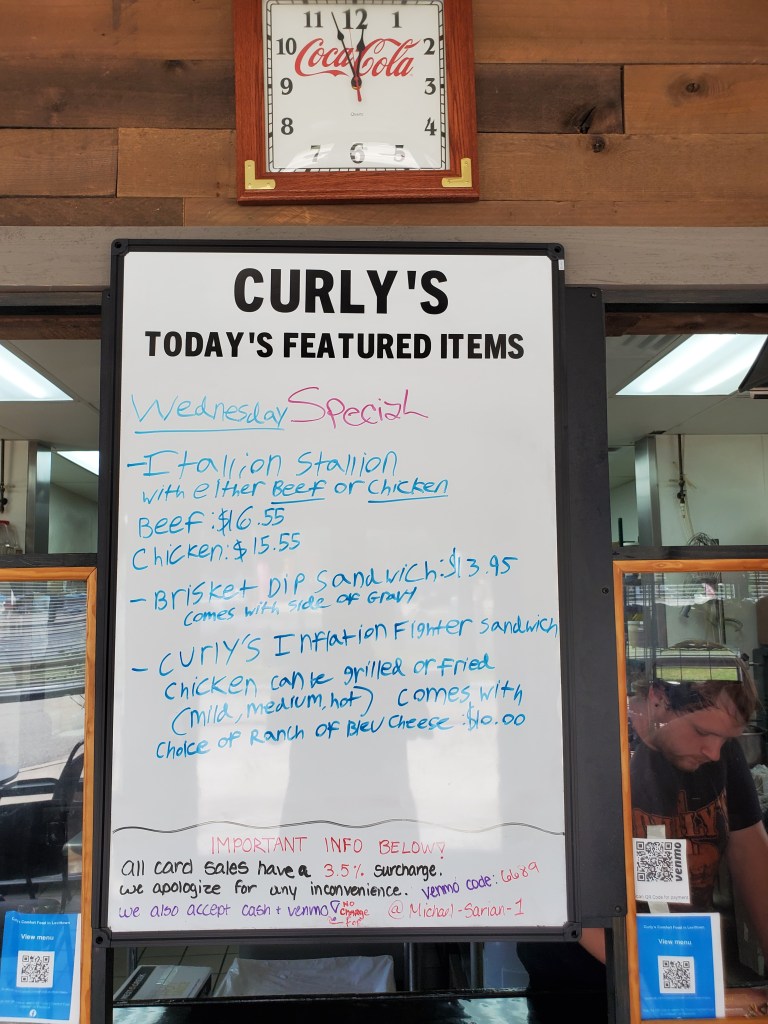 11 12 1
10 Coca-Cola 2
9 3
8 4
7 6 5
CURLY'S
TODAY'S FEATURED ITEMS
Wednesday Special
- Itallion Stallion
with either Beef or Chicken
Beef: $16.55
Chicken: $15.55
- Brisket Dip Sandwich: $13.95
comes with side of Gravy
- Curly's Inflation Fighter Sandwich
Chicken can be grilled or fried
(mild, medium, hot) comes with
Choice of Ranch of Bleu Cheese: $10.00
IMPORTANT INFO BELOW!
all card sales have a 3.5% surcharge.
we apologize for any inconvenience. venmo code: 6689
we also accept cash + venmo! NO CHARGE FOR @Michael-Sarian-1
venmo
View menu
View menu